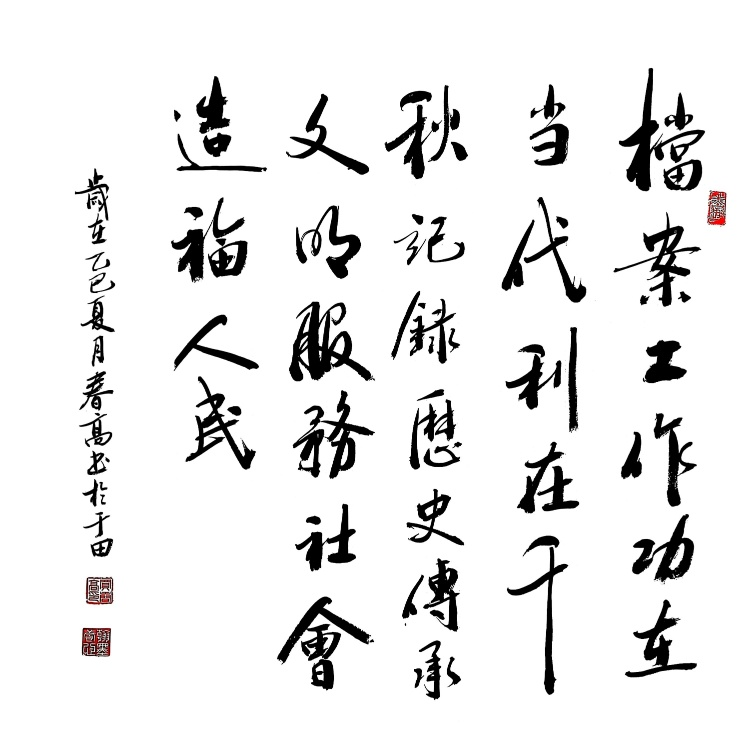 檔案工作功在
当代利在千
秋記録歷史傳承
文明服務社會
造福人民
歲在乙巳夏月春高书於于田